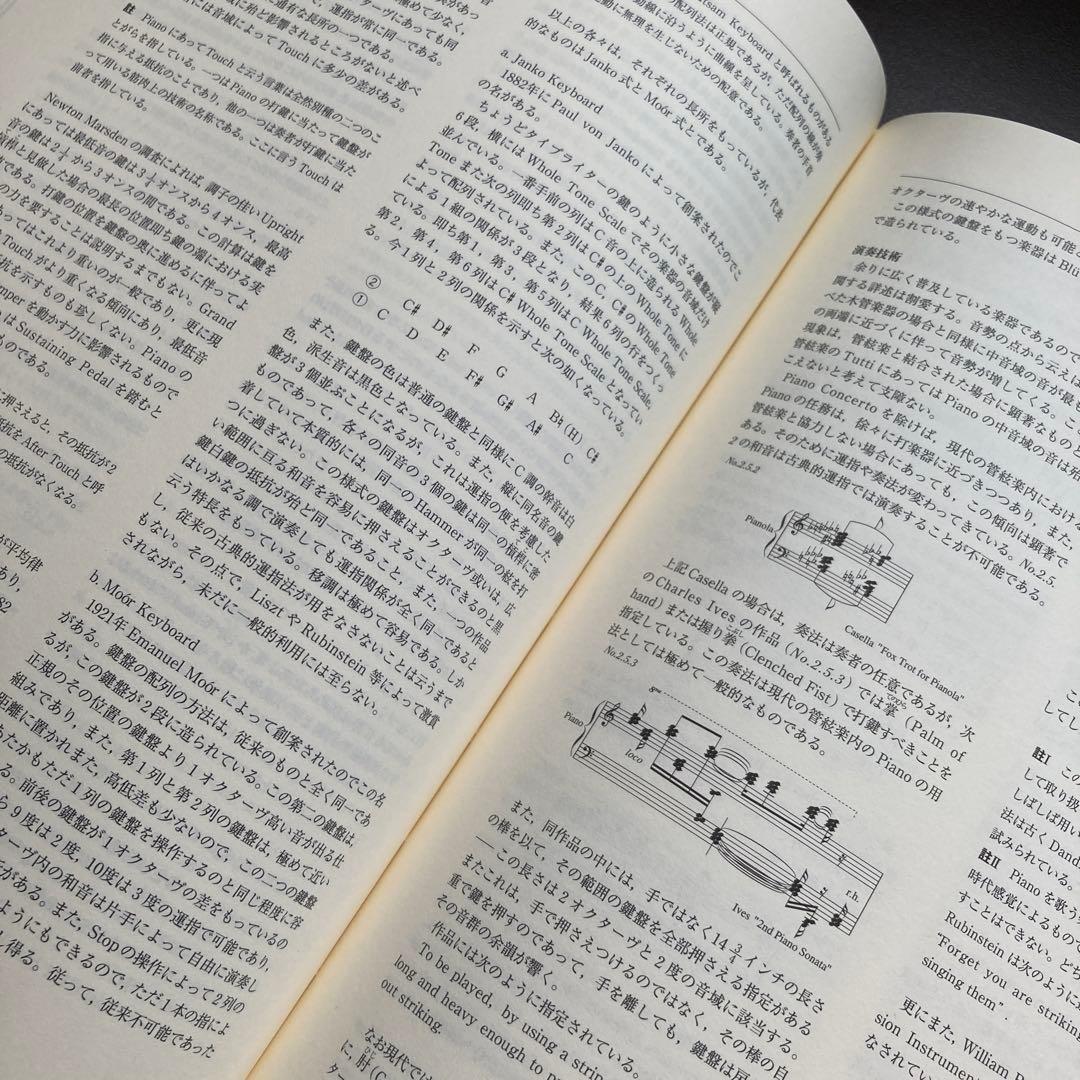 るところがないと述べ
Touchに多少の差がある。
註 PianoにあってTouchと云う言葉は全然別種の二つのこ
とがらを指している。一つはPianoの打鍵に当たって鍵盤が
指に与える抵抗のことであり、他の一つは奏者が打鍵に当た
って用いる筋肉上の技術の名称である。ここに言うTouchは
前者を指している。
Newton Marsdenの調査によれば、調子の低いUpright
にあっては最低音の鍵は3
オンスから4オンス、最高
音の鍵は2
から3オンスの間である。この計算は鍵を
と見做した場合の最長の位置即ち鍵の端における実
である。打鍵の位置を鍵盤の奥に進めるに伴ってよ
の力を要することは説明するまでもない。Grand
あってはこれより重いのが一般であり、更に現
Touchがより重くなる傾向にあり、最低音
抗を示すものも珍しくない。Pianoの
mperを動かす力に影響されるもので
はSustaining Pedalを踏むと
ものである。
押さえると、その抵抗が2
抗をAfter Touchと呼
の抵抗がなくなる。
が平均律
あり、
82
tsam Keyboardと呼ばれるものがある
配列法は正規であるが、ただ配列の線が奏
動線に沿うように曲線を呈している。奏者の手首
動に無理を生じないための配意である。
以上の各々は、それぞれの長所をもっているが、代表
的なものはJanko式とMoór式とである。
a. Janko Keyboard
1882年にPaul von Jankoによって創案されたのでこ
の名がある。
ちょうどタイプライターの鍵のように小さな鍵盤が縦
6段、横にはWhole Tone Scaleでその楽器の音域だけ
並んでいる。一番手前の列はC音の上に造られるWhole
Toneまた次の列即ち第2列はC♯の上のWhole Toneに
よって配列されている。また、このC, C♯のWhole Tone
による1組の関係が2段となり、結果6列の行をつくっ
ている。即ち第1, 第3, 第5列はC Whole Tone Scale,
第2, 第4, 第6列はC♯ Whole Tone Scaleとなってい
る。今1列と2列の関係を示すと次の如くなっている。
② C♯ D♯ F G A B♮(H) C♯
① C D E F♯ G♯ A♯ C
また、鍵盤の色は普通の鍵盤と同様にC調の幹音は白
色、派生音は黒色となっている。また、縦に同名音の鍵
盤が3個並ぶことになるが、これは運指の便を考慮した
ものであって、各々の同音の3個の鍵は同一の槓桿に密
着していて本質的には、同一のHammerが同一の絃を打
つに過ぎない。この様式の鍵盤はオクターヴ或いは、広
い範囲に亘る和音を容易に押さえることができるのと黒
鍵白鍵の抵抗が殆ど同一であること、また、一つの作品
はいかなる調で演奏しても運指関係が全く同一であると
云う特長をもっている。移調は極めて容易である。しか
し、従来の古典的運指法が用をなさないことは云うまで
もない。その点で、LisztやRubinstein等によって激賞
されながら、未だに一般的利用には至らない。
b. Moór Keyboard
1921年Emanuel Moórによって創案されたのでこの名
がある。鍵盤の配列の方法は、従来のものと全く同一であ
るが、この鍵盤が2段に造られている。この第二の鍵盤は、
正規のその位置の鍵盤より1オクターヴ高い音が出る仕
組みであり、また、第1列と第2列の鍵盤は、極めて近い
距離に置かれまた、高低差も少ないので、この二つの鍵盤
あたかもただ1列の鍵盤を操作するのと同じ程度に容
る。前後の鍵盤が1オクターヴの差をもっているの
ら9度は2度、10度は3度の運指で可能であり、
ターヴ内の和音は片手によって自由に演奏し
がある。また、Stopの操作によって2列の
ようにもできるので、ただ1本の指によ
し得る。従って、従来不可能であった
オクターヴの速やかな運動も可能
この様式の鍵盤をもつ楽器はBlü
で造られている。
演奏技術
余りに広く普及している楽器であるので
関する詳述は割愛する。音勢の点から云えば
べた木管楽器の場合と同様に中音域の音が最も
の両端に近づくに伴って音勢が増してくる。この
現象は、管絃楽と結合された場合に顕著なものと
管絃楽のTuttiにあってはPianoの中音域の音は殆
こえないと考えて支障ない。
Piano Concertoを除けば、現代の管絃楽内における
Pianoの任務は、徐々に打楽器に近づきつつあり、また、
管絃楽と協力しない場合にあっても、この傾向は顕著で
ある。そのために運指や奏法が変わってきている。No.2.5.
2の和音は古典的運指では演奏することが不可能である。
No.2.5.2
Pianola
Casella "Fox Trot for Pianola"
上記Casellaの場合は、奏法は奏者の任意であるが、次
のCharles Ivesの作品(No.2.5.3)では掌(Palm of
hand)または握り拳(Clenched Fist)で打鍵すべきことを
指定している。この奏法は現代の管絃楽内のPianoの用
法としては極めて一般的なものである。
No.2.5.3
8va
Piano
loco
r.h.
Ives "2nd Piano Sonata"
また、同作品の中には、手ではなく14 3/4インチの長さ
の棒を以て、その範囲の鍵盤を全部押さえる指定がある
——この長さは2オクターヴと2度の音域に該当する。
またこれは、手で押さえつけるのではなく、その棒の自
重で鍵を押すのであって、手を離しても、鍵盤は戻
その音群の余韻が響く。
作品には次のように指定されている。
To be played, by using a strip
long and heavy enough to p
out striking.
なお現代では
に、肘(
ター
この
してし
註I この
して取り扱
しばしば用い
法は古くDand
試みられている。
註II Pianoを歌う
時代感覚によるもので
すことはできない。どち
Rubinsteinは次のように
"Forget you are striking
singing them".
更にまた、William D
sion Instrumen
なされている